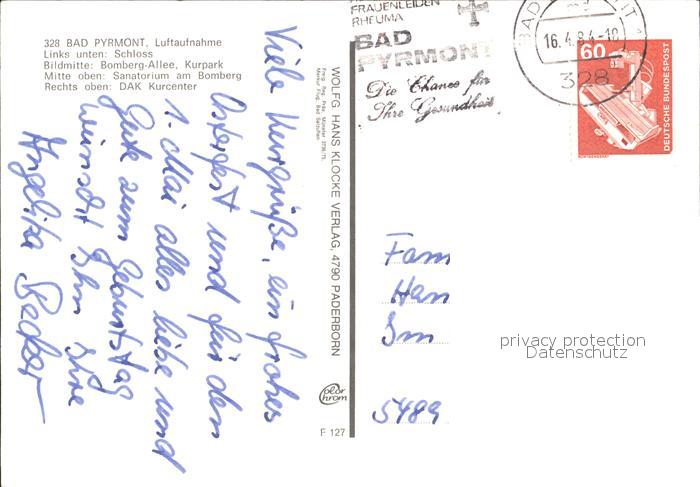 328 BAD PYRMONT, Luftaufnahme
Links unten: Schloss
Bildmitte: Bomberg-Allee, Kurpark
Mitte oben: Sanatorium am Bomberg
Rechts oben: DAK Kurcenter
Viele Kurgrüße, ein frohes
Osterfest und für den
1. Mai alles liebe und
Gute zum Geburtstag
wünscht Ihn Ihre
Angelika Becker
WOLFG. HANS KLOCKE VERLAG, 4790 PADERBORN
Color
chrom
F 127
FRAUENLEIDEN
RHEUMA
BAD
PYRMONT
Die Chance für
Ihre Gesundheit
BAD
16.4.84-18
328
60
DEUTSCHE BUNDESPOST
Fam
Han
5489
privacy protection
Datenschutz